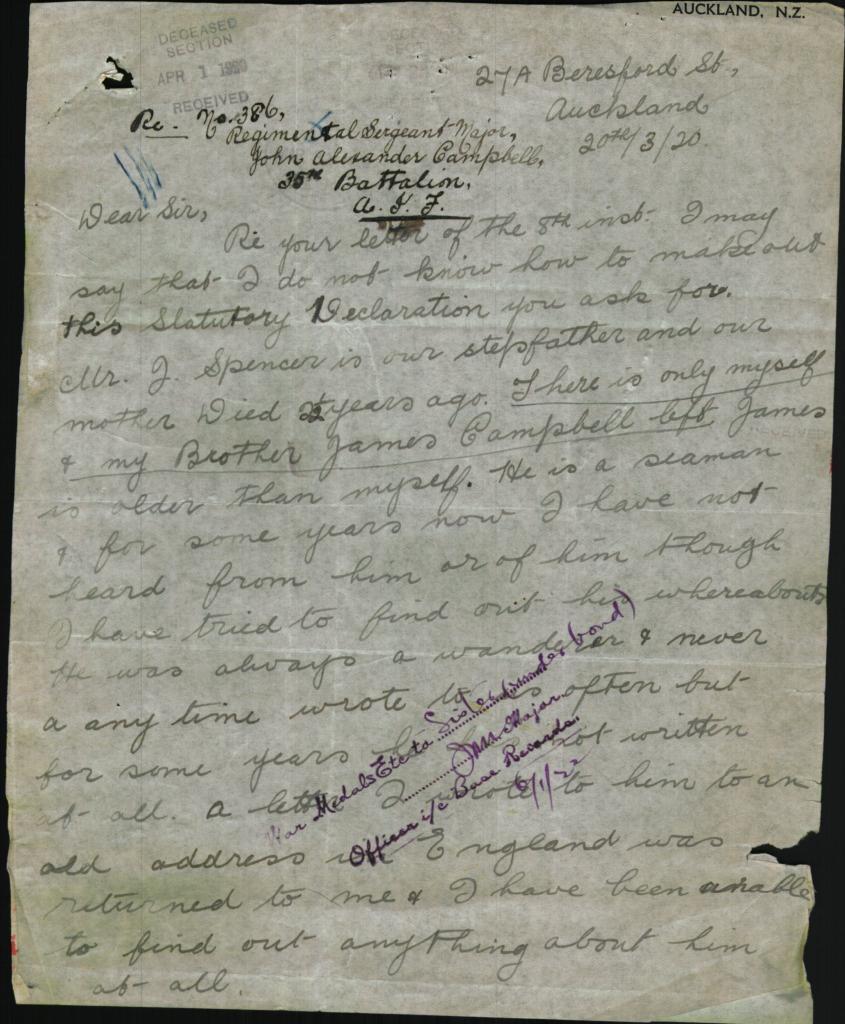 AUCKLAND, N.Z.
DECEASED
SECTION
APR 1 1920
RECEIVED
27A Beresford St,
Auckland
20th/3/20.
Re. No. 386,
Regimental Sergeant Major,
John Alexander Campbell,
35th Battalion,
A. I. F.
Dear Sir,
Re your letter of the 8th inst. I may
say that I do not know how to make out
this Statutory Declaration you ask for.
Mr. J. Spencer is our stepfather and our
mother Died 22 years ago. There is only myself
& my Brother James Campbell left. James
is older than myself. He is a seaman
& for some years now I have not
heard from him or of him though
I have tried to find out his whereabouts
He was always a wanderer & never
a any time wrote to us often but
for some years he has not written
at all. A letter I wrote to him to an
old address in England was
returned to me & I have been unable
to find out anything about him
at all.
War Medals Etc to Sister (under bond)
Major.
Officer i/c Base Records.
6/1/22